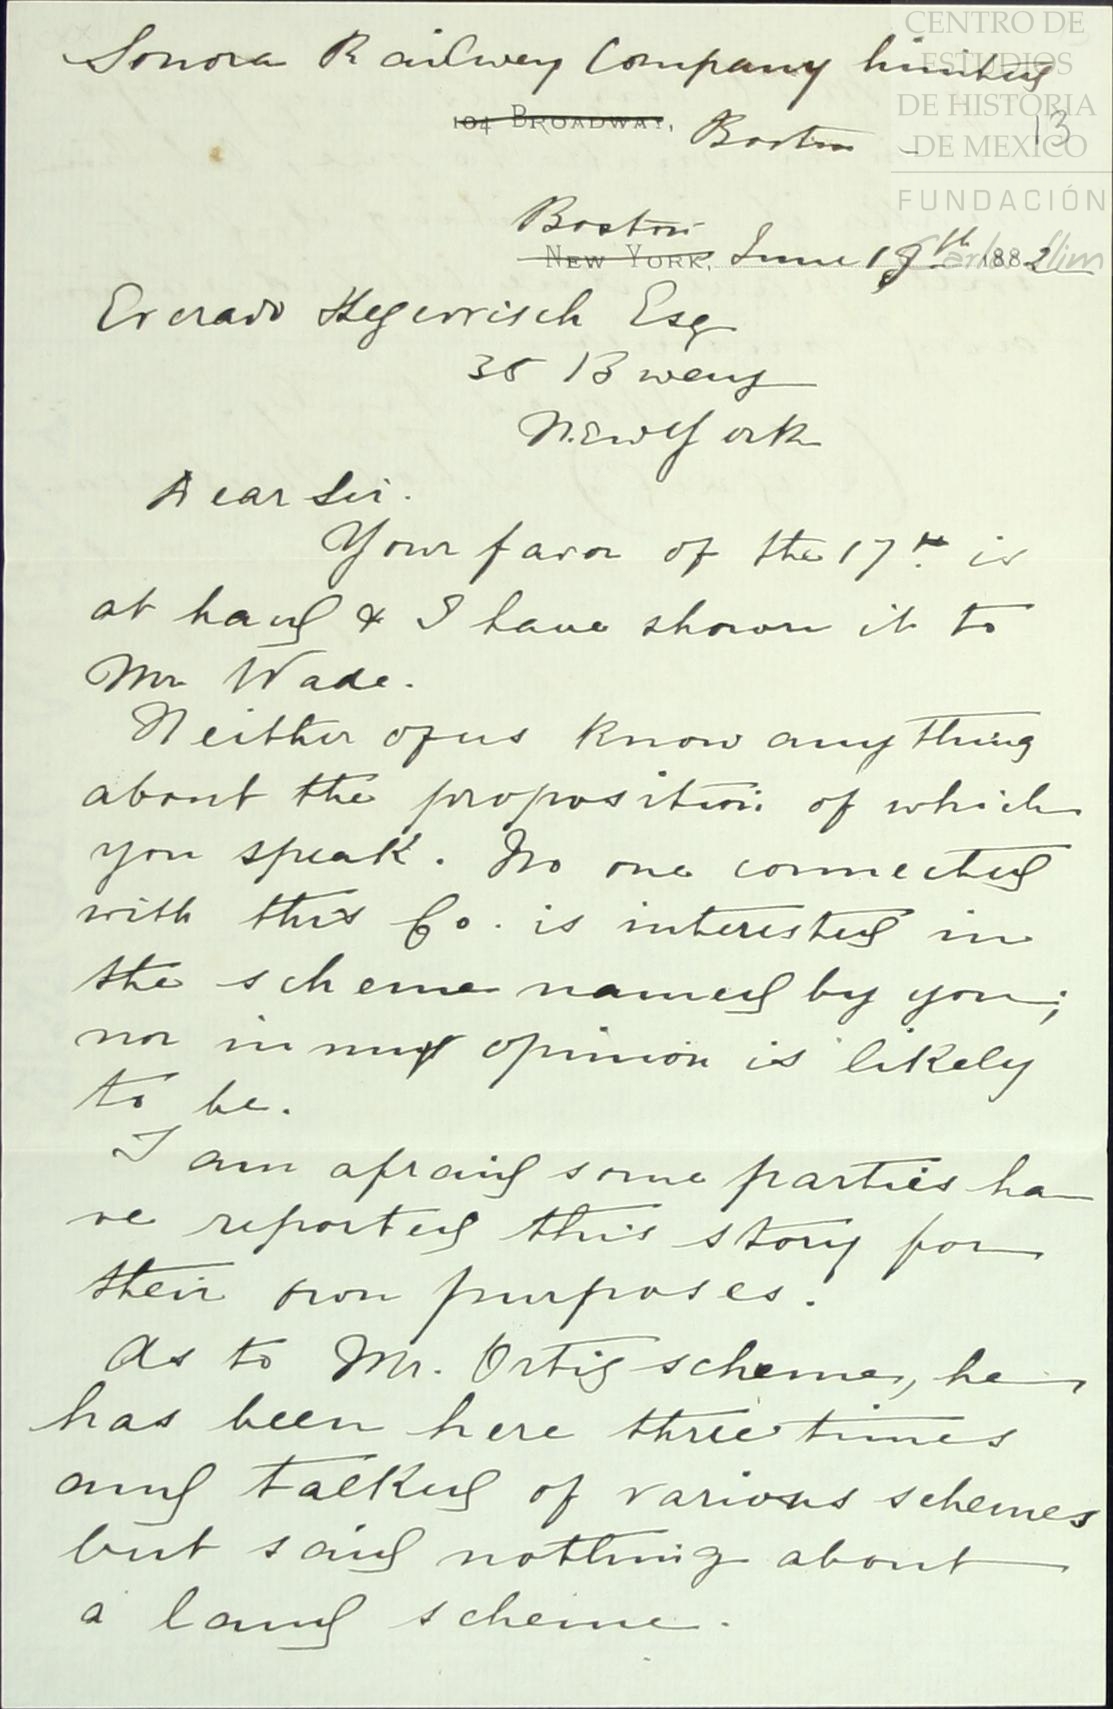 Sonora Railway Company limited
104 BROADWAY, Boston
13
Boston
NEW YORK, June 19th 1882
Everado Hegewisch Esq
35 Bway
New York
Dear Sir.
Your favor of the 17th is
at hand & I have shown it to
Mr Wade.
Neither of us know anything
about the proposition of which
you speak. No one connected
with this Co. is interested in
the scheme named by you;
nor in my opinion is likely
to be.
I am afraid some parties ha
ve reported this story for
their own purposes.
As to Mr. Ortiz scheme, he
has been here three times
and talked of various schemes
but said nothing about
a land scheme.
CENTRO DE
ESTUDIOS
DE HISTORIA
DE MEXICO
FUNDACIÓN
Carlos Slim